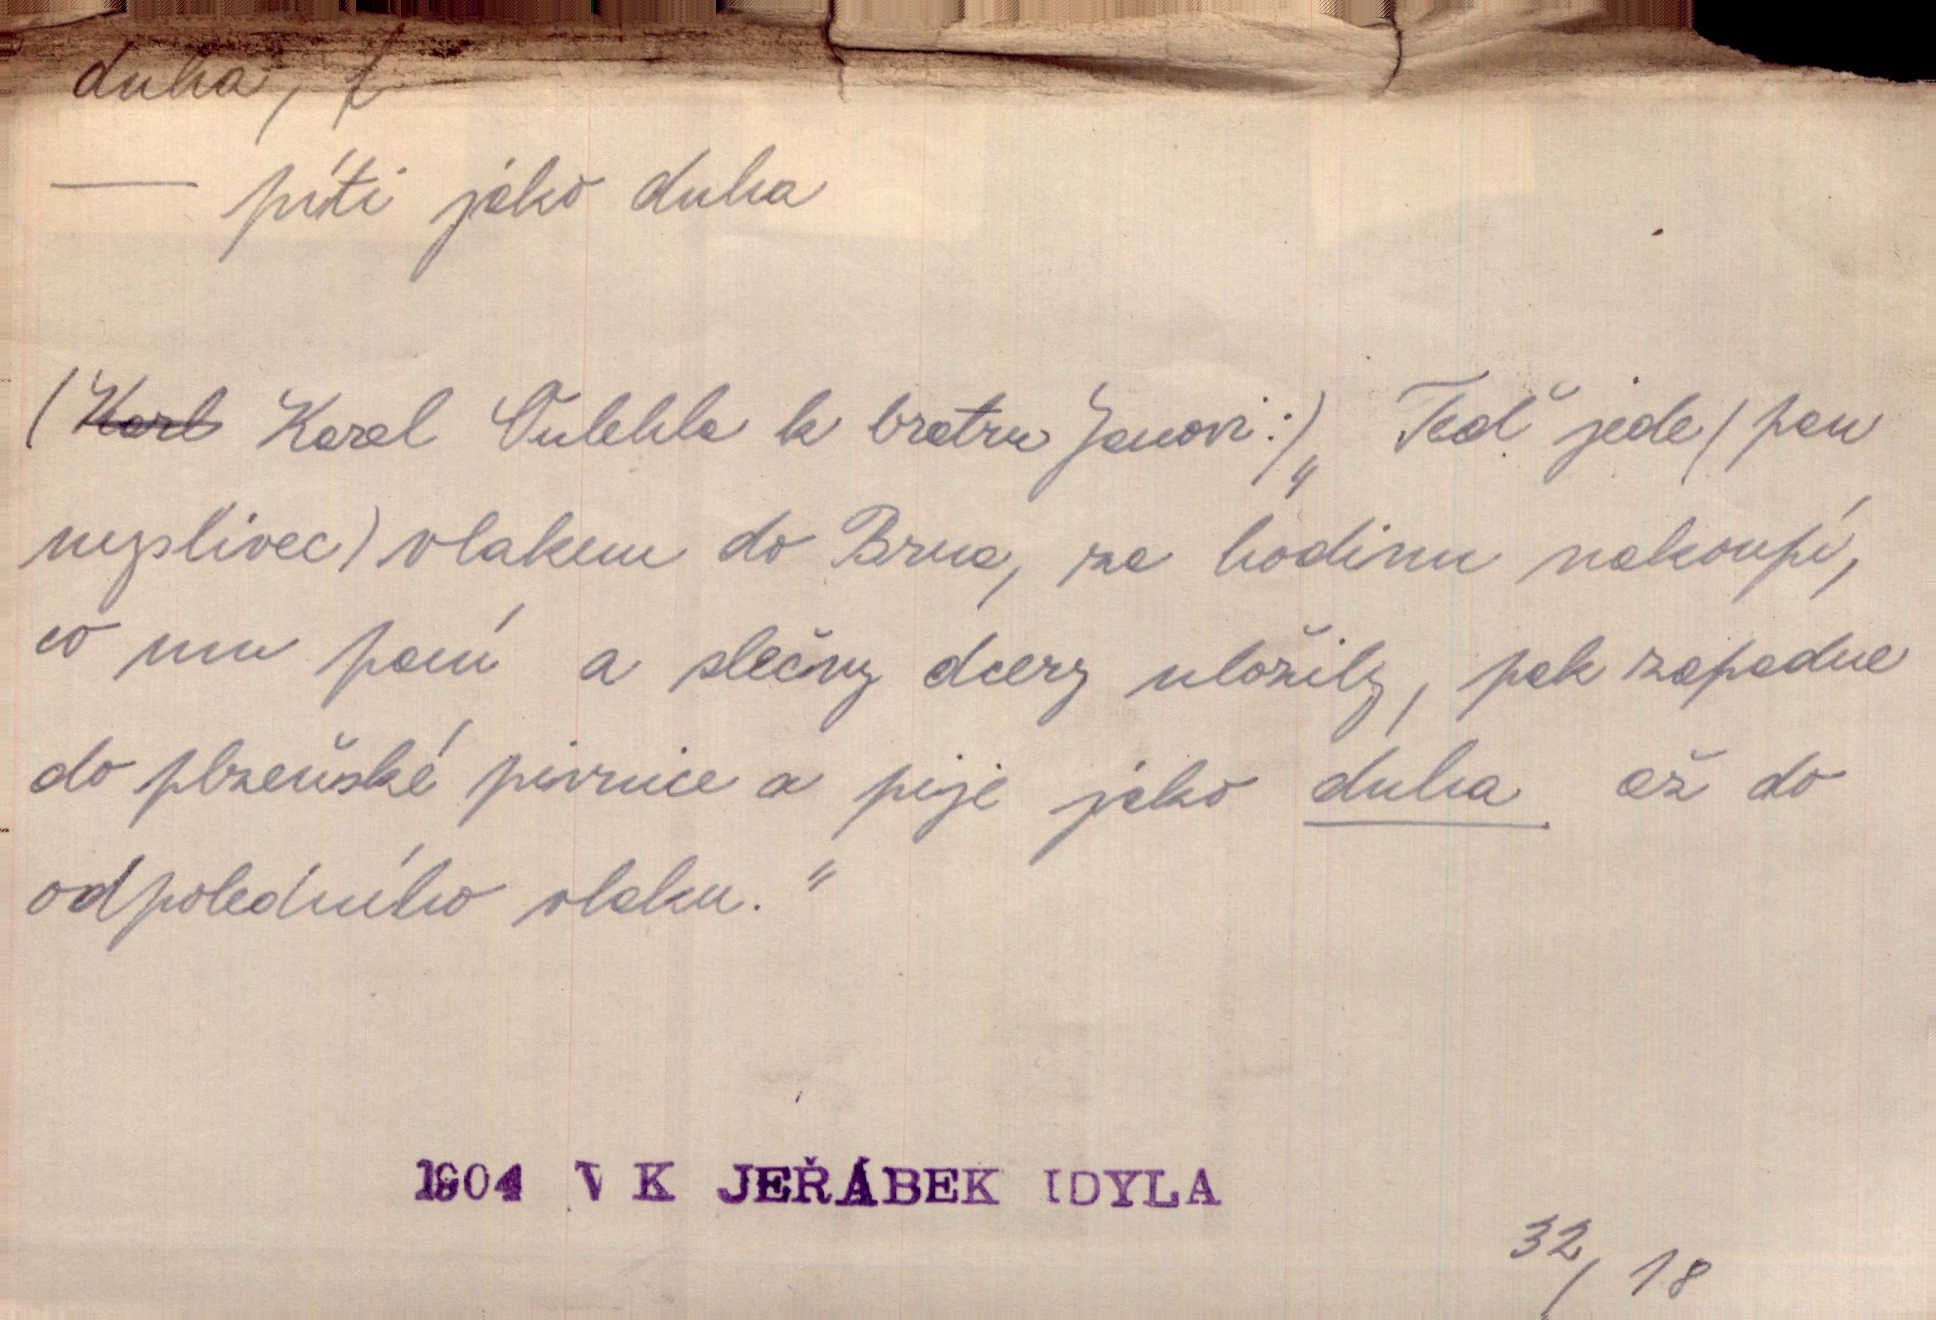 duha, f
— píti jako duha
(Karl Karel Vulehla k bratru Janovi:) „Teď jede (pan
myslivec) vlakem do Brna, za hodinu nakoupí,
co mu paní a slečny dcery uložily, pak zapadne
do plzeňské pivnice a pije jako duha až do
odpoledního vlaku."
1904 V K JEŘÁBEK IDYLA
32/18